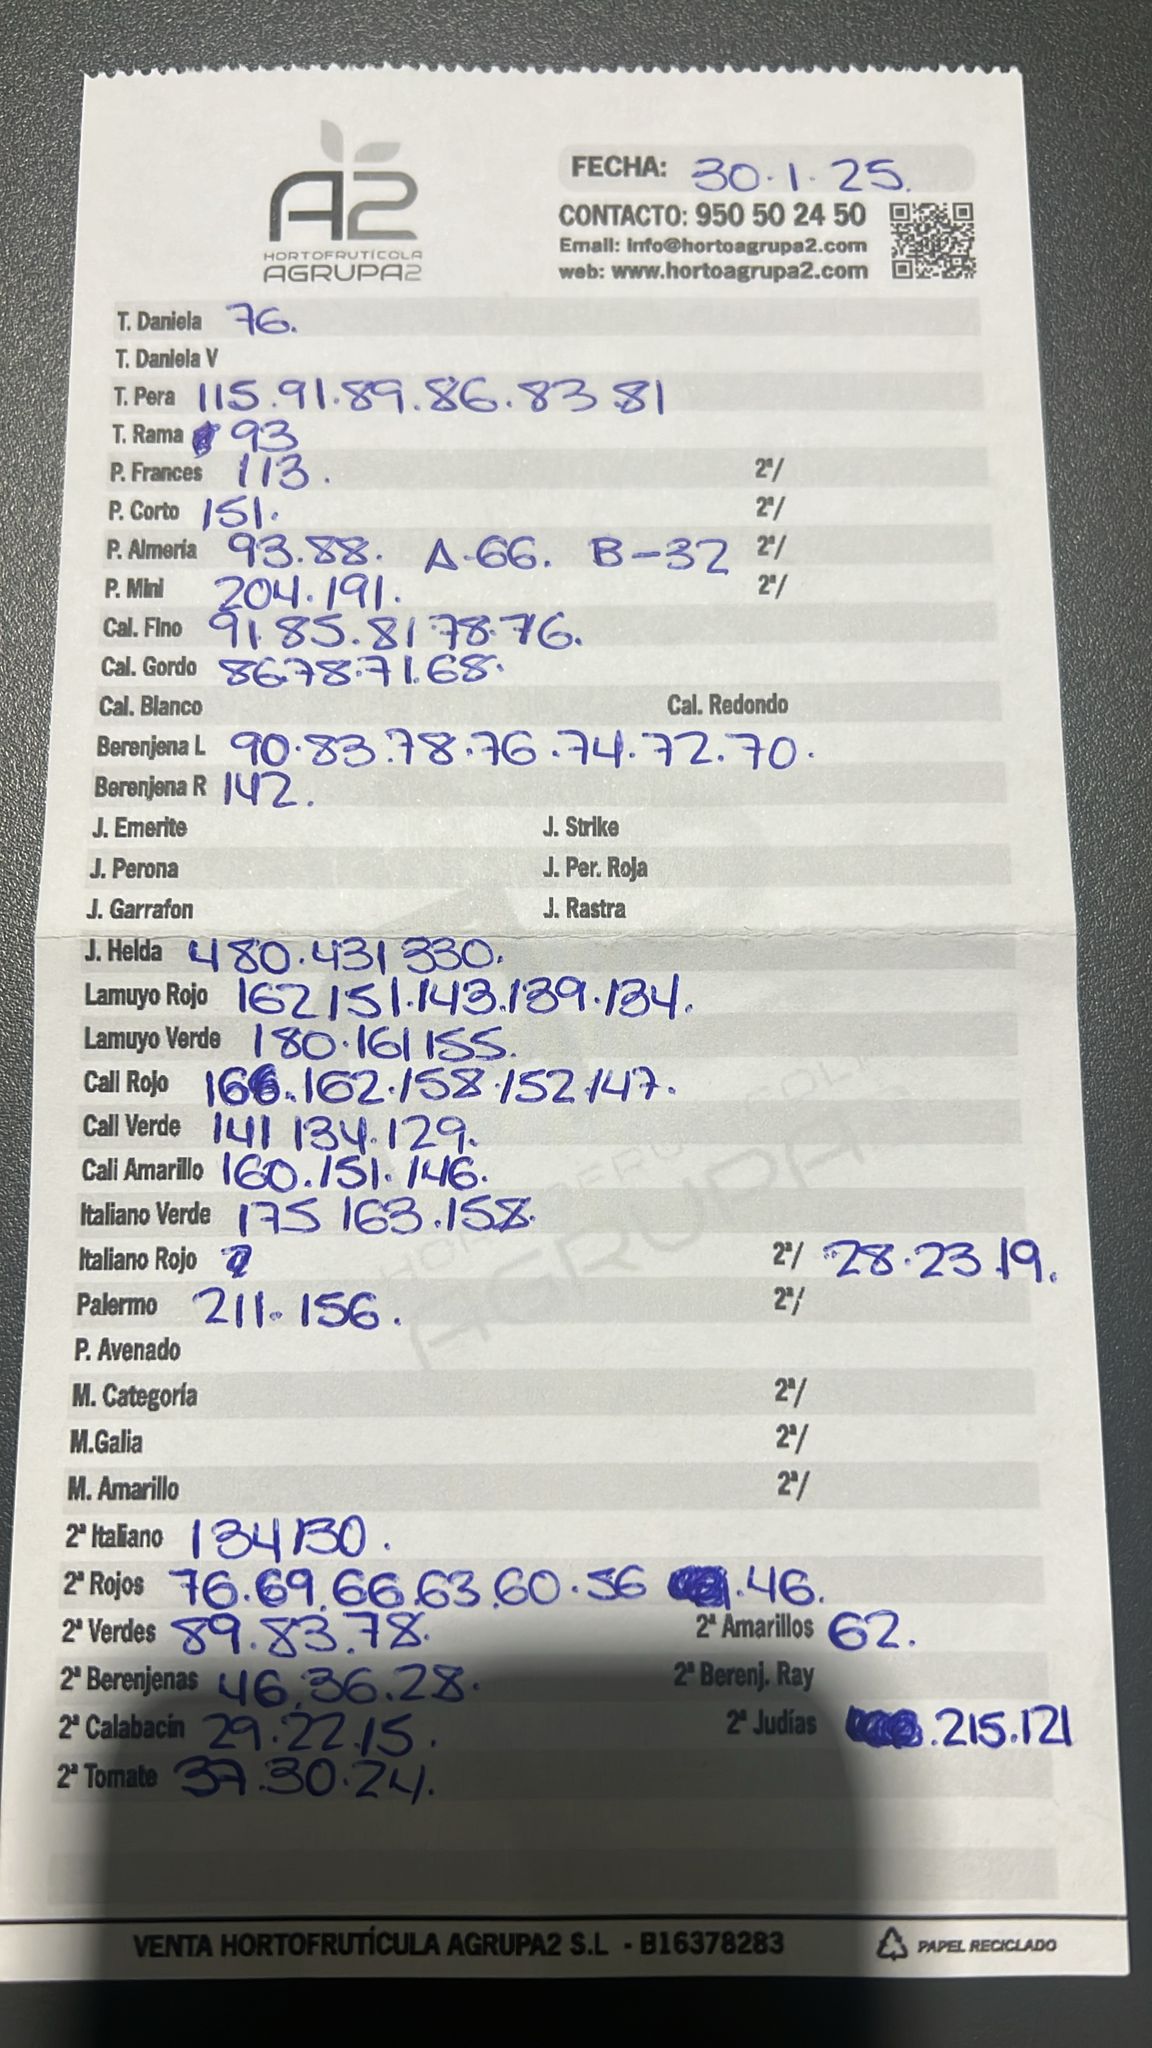 A2
HORTOFRUTÍCOLA
AGRUPA2
FECHA: 30.1.25.
CONTACTO: 950 50 24 50
Email: info@hortoagrupa2.com
web: www.hortoagrupa2.com
T. Daniela 76.
T. Daniela V
T. Pera 115.91.89.86.83 81
T. Rama 93
P. Frances 113. 2ª/
P. Corto 151. 2ª/
P. Almería 93.88. A-66. B-32 2ª/
P. Mini 204.191. 2ª/
Cal. Fino 91.85.81 78.76.
Cal. Gordo 86.78.71.68.
Cal. Blanco Cal. Redondo
Berenjena L 90.83.78.76.74.72.70.
Berenjena R 142.
J. Emerite J. Strike
J. Perona J. Per. Roja
J. Garrafon J. Rastra
J. Helda 480.431 330.
Lamuyo Rojo 162 151.143.139.134.
Lamuyo Verde 180.161 155.
Cali Rojo 166.162.158.152.147.
Cali Verde 141 134.129.
Cali Amarillo 160.151.146.
Italiano Verde 175 163.158.
Italiano Rojo 2ª/ 28.23.19.
Palermo 211.156. 2ª/
P. Avenado
M. Categoría 2ª/
M.Galia 2ª/
M. Amarillo 2ª/
2ª Italiano 134 130.
2ª Rojos 76.69.66.63.60.56 .46.
2ª Verdes 89.83.78. 2ª Amarillos 62.
2ª Berenjenas 46.36.28. 2ª Berenj. Ray
2ª Calabacín 29.22.15. 2ª Judías .215.121
2ª Tomate 37.30.24.
VENTA HORTOFRUTÍCULA AGRUPA2 S.L - B16378283 PAPEL RECICLADO